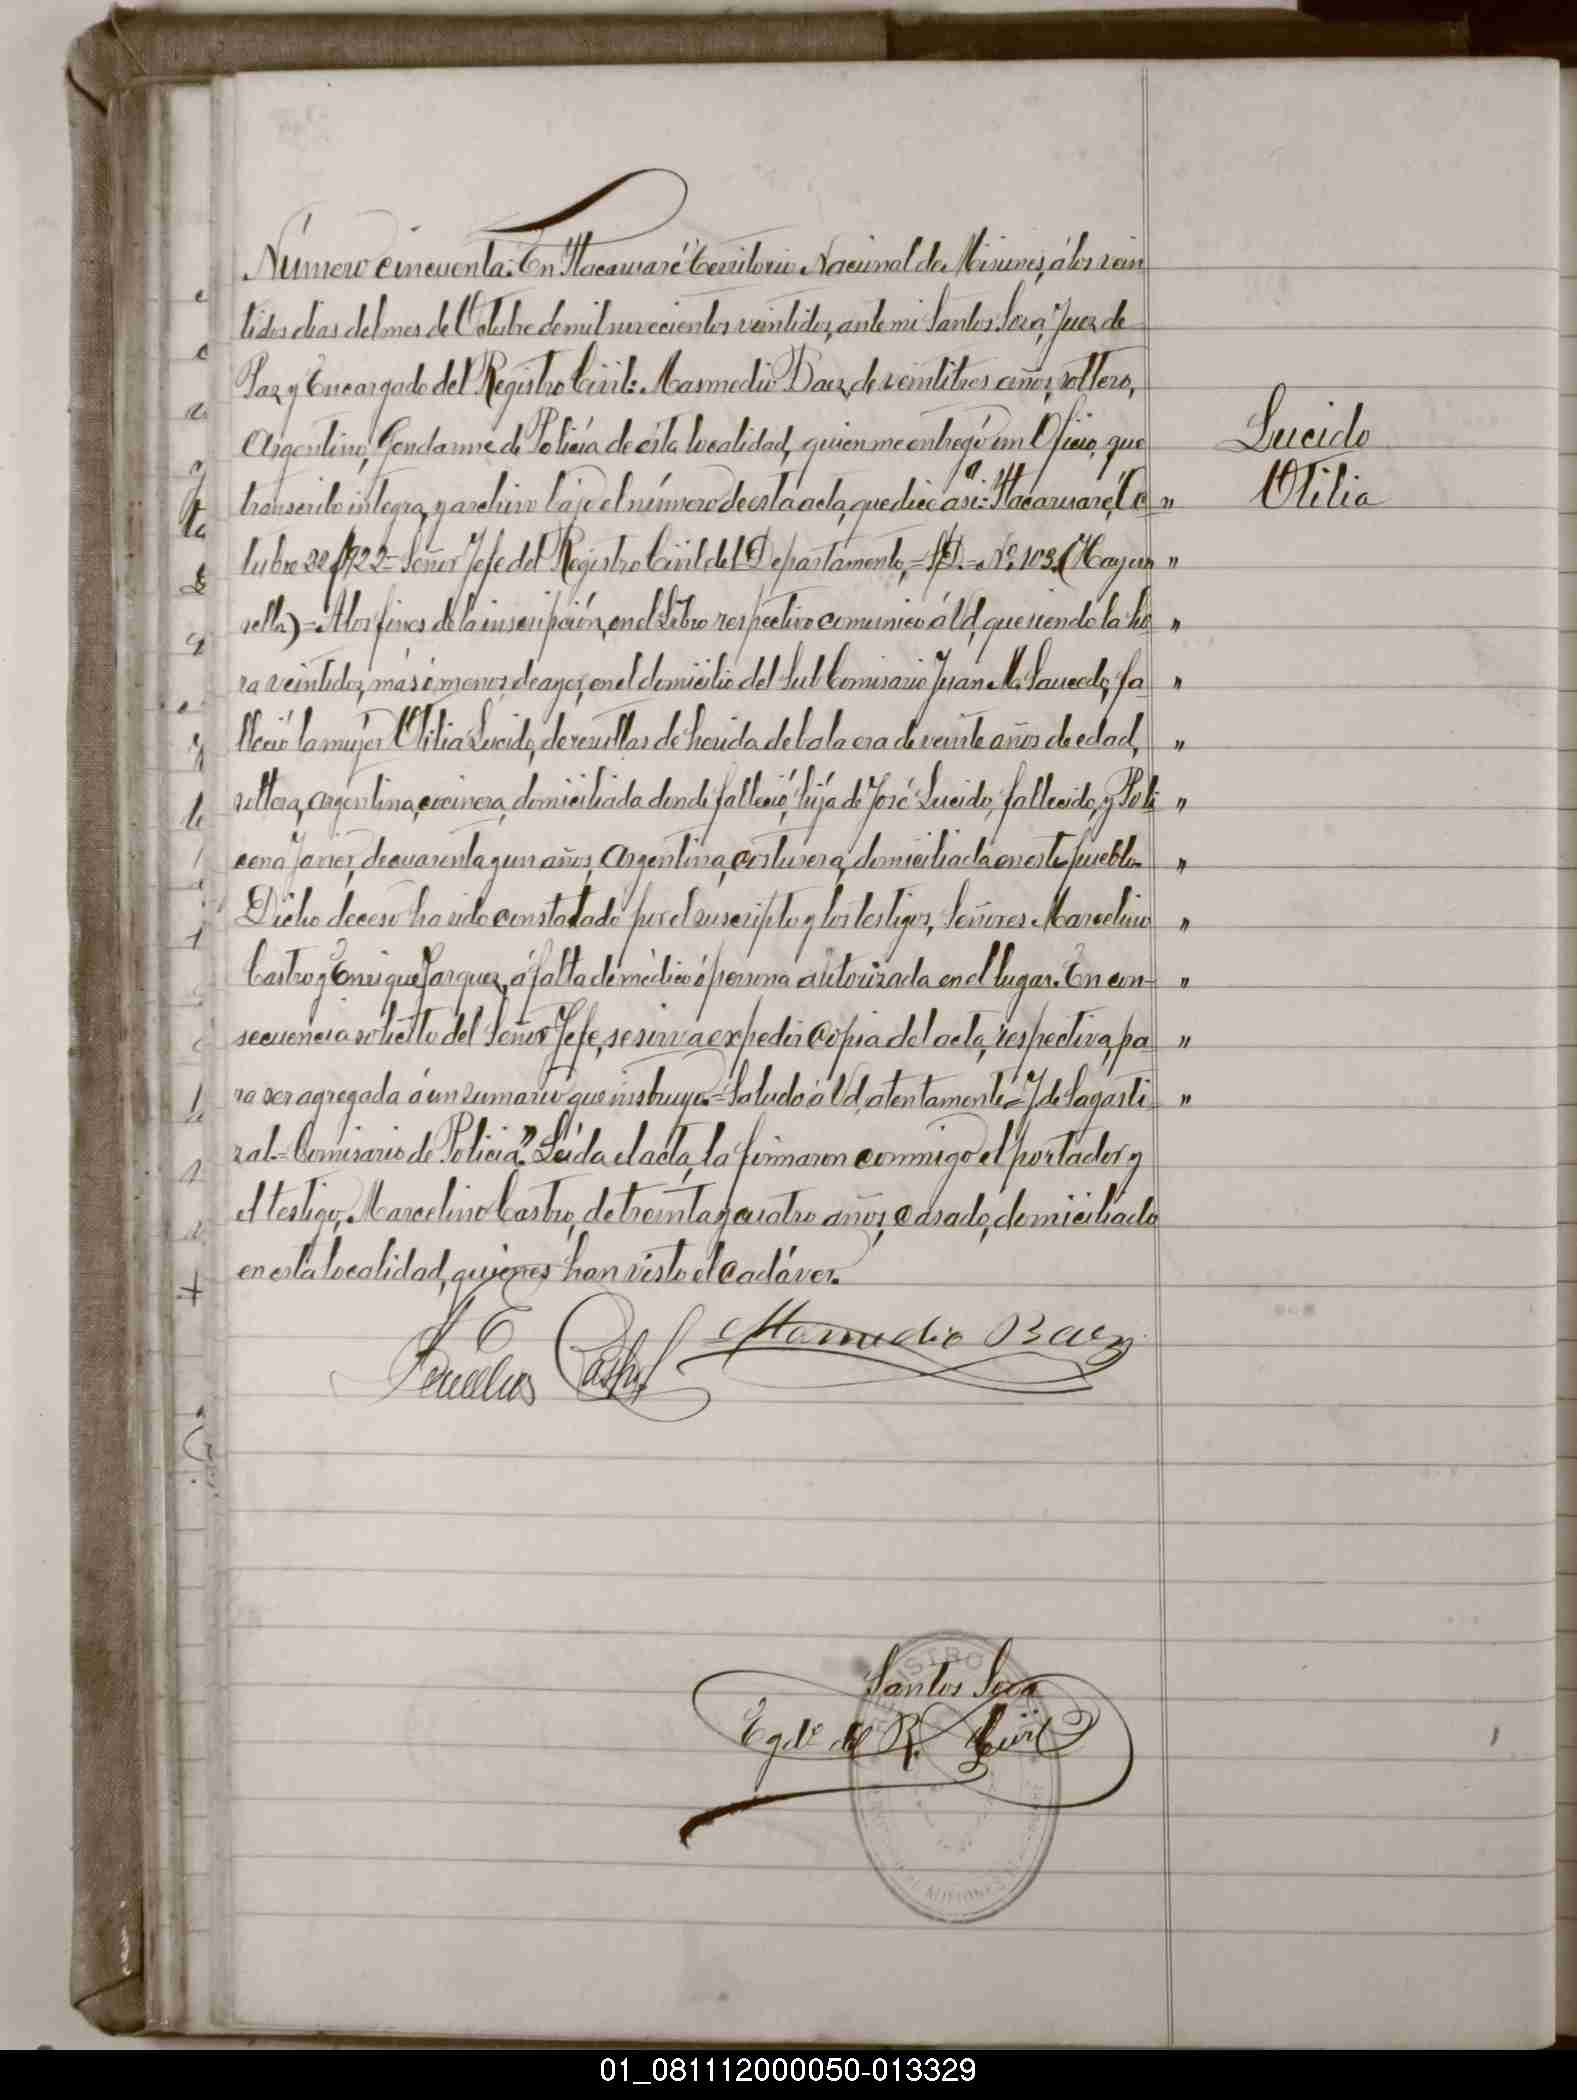 Número cincuenta: En Itacaruaré Territorio Nacional de Misiones, á los vein
tidos dias del mes de Octubre de mil novecientos veintidos, ante mi Santos Sosa, Juez de
Paz y Encargado del Registro Civil: Masmedio Baez, de veintitres años, soltero,
Argentino, Gendarme de Policía de ésta localidad, quien me entregó un Oficio, que
transcribo integro, y archivo bajo el número de esta acta, que dice asi: "Itacaruaré, Oc "
tubre 22/922 = Señor Jefe del Registro Civil del Departamento, = S/D. = Nº. 103. (Hay un "
sello) = A los fines de la inscripción, en el Libro respectivo comunico á Vd, que siendo la ho "
ra veintidos, más ó menos, de ayer, en el domicilio del Sub Comisario Juan M. Saucedo, fa "
lleció la mujer Otilia Lucido, de resultas de herida de bala era de veinte años de edad, "
soltera, argentina, cocinera, domiciliada donde falleció, hija de José Lucido, fallecido, y Poli "
cena Javier, de cuarenta y un años, Argentina, costurera, domiciliada en este pueblo. "
Dicho deceso ha sido constatado por el suscripto y los testigos, Señores Marcelino "
Castro y Enrique Jarquez, á falta de médico ó persona autorizada en el lugar. En con- "
secuencia solicito del Señor Jefe, se sirva expedir copia del acta, respectiva, pa "
ra ser agregada á un sumario que instruyo. = Saludo á Vd, atentamente = J. de Lagasti "
zal. = Comisario de Policia". Leida el acta, la firmaron conmigo el portador y
el testigo, Marcelino Castro, de treinta y cuatro años, casado, domiciliado
en esta localidad, quienes han visto el cadáver.
Lucido
Otilia
Castro
Mamedio Baez
Santos Sosa
Egdo del R. Civil
REGISTRO
MISIONES
01_081112000050-013329